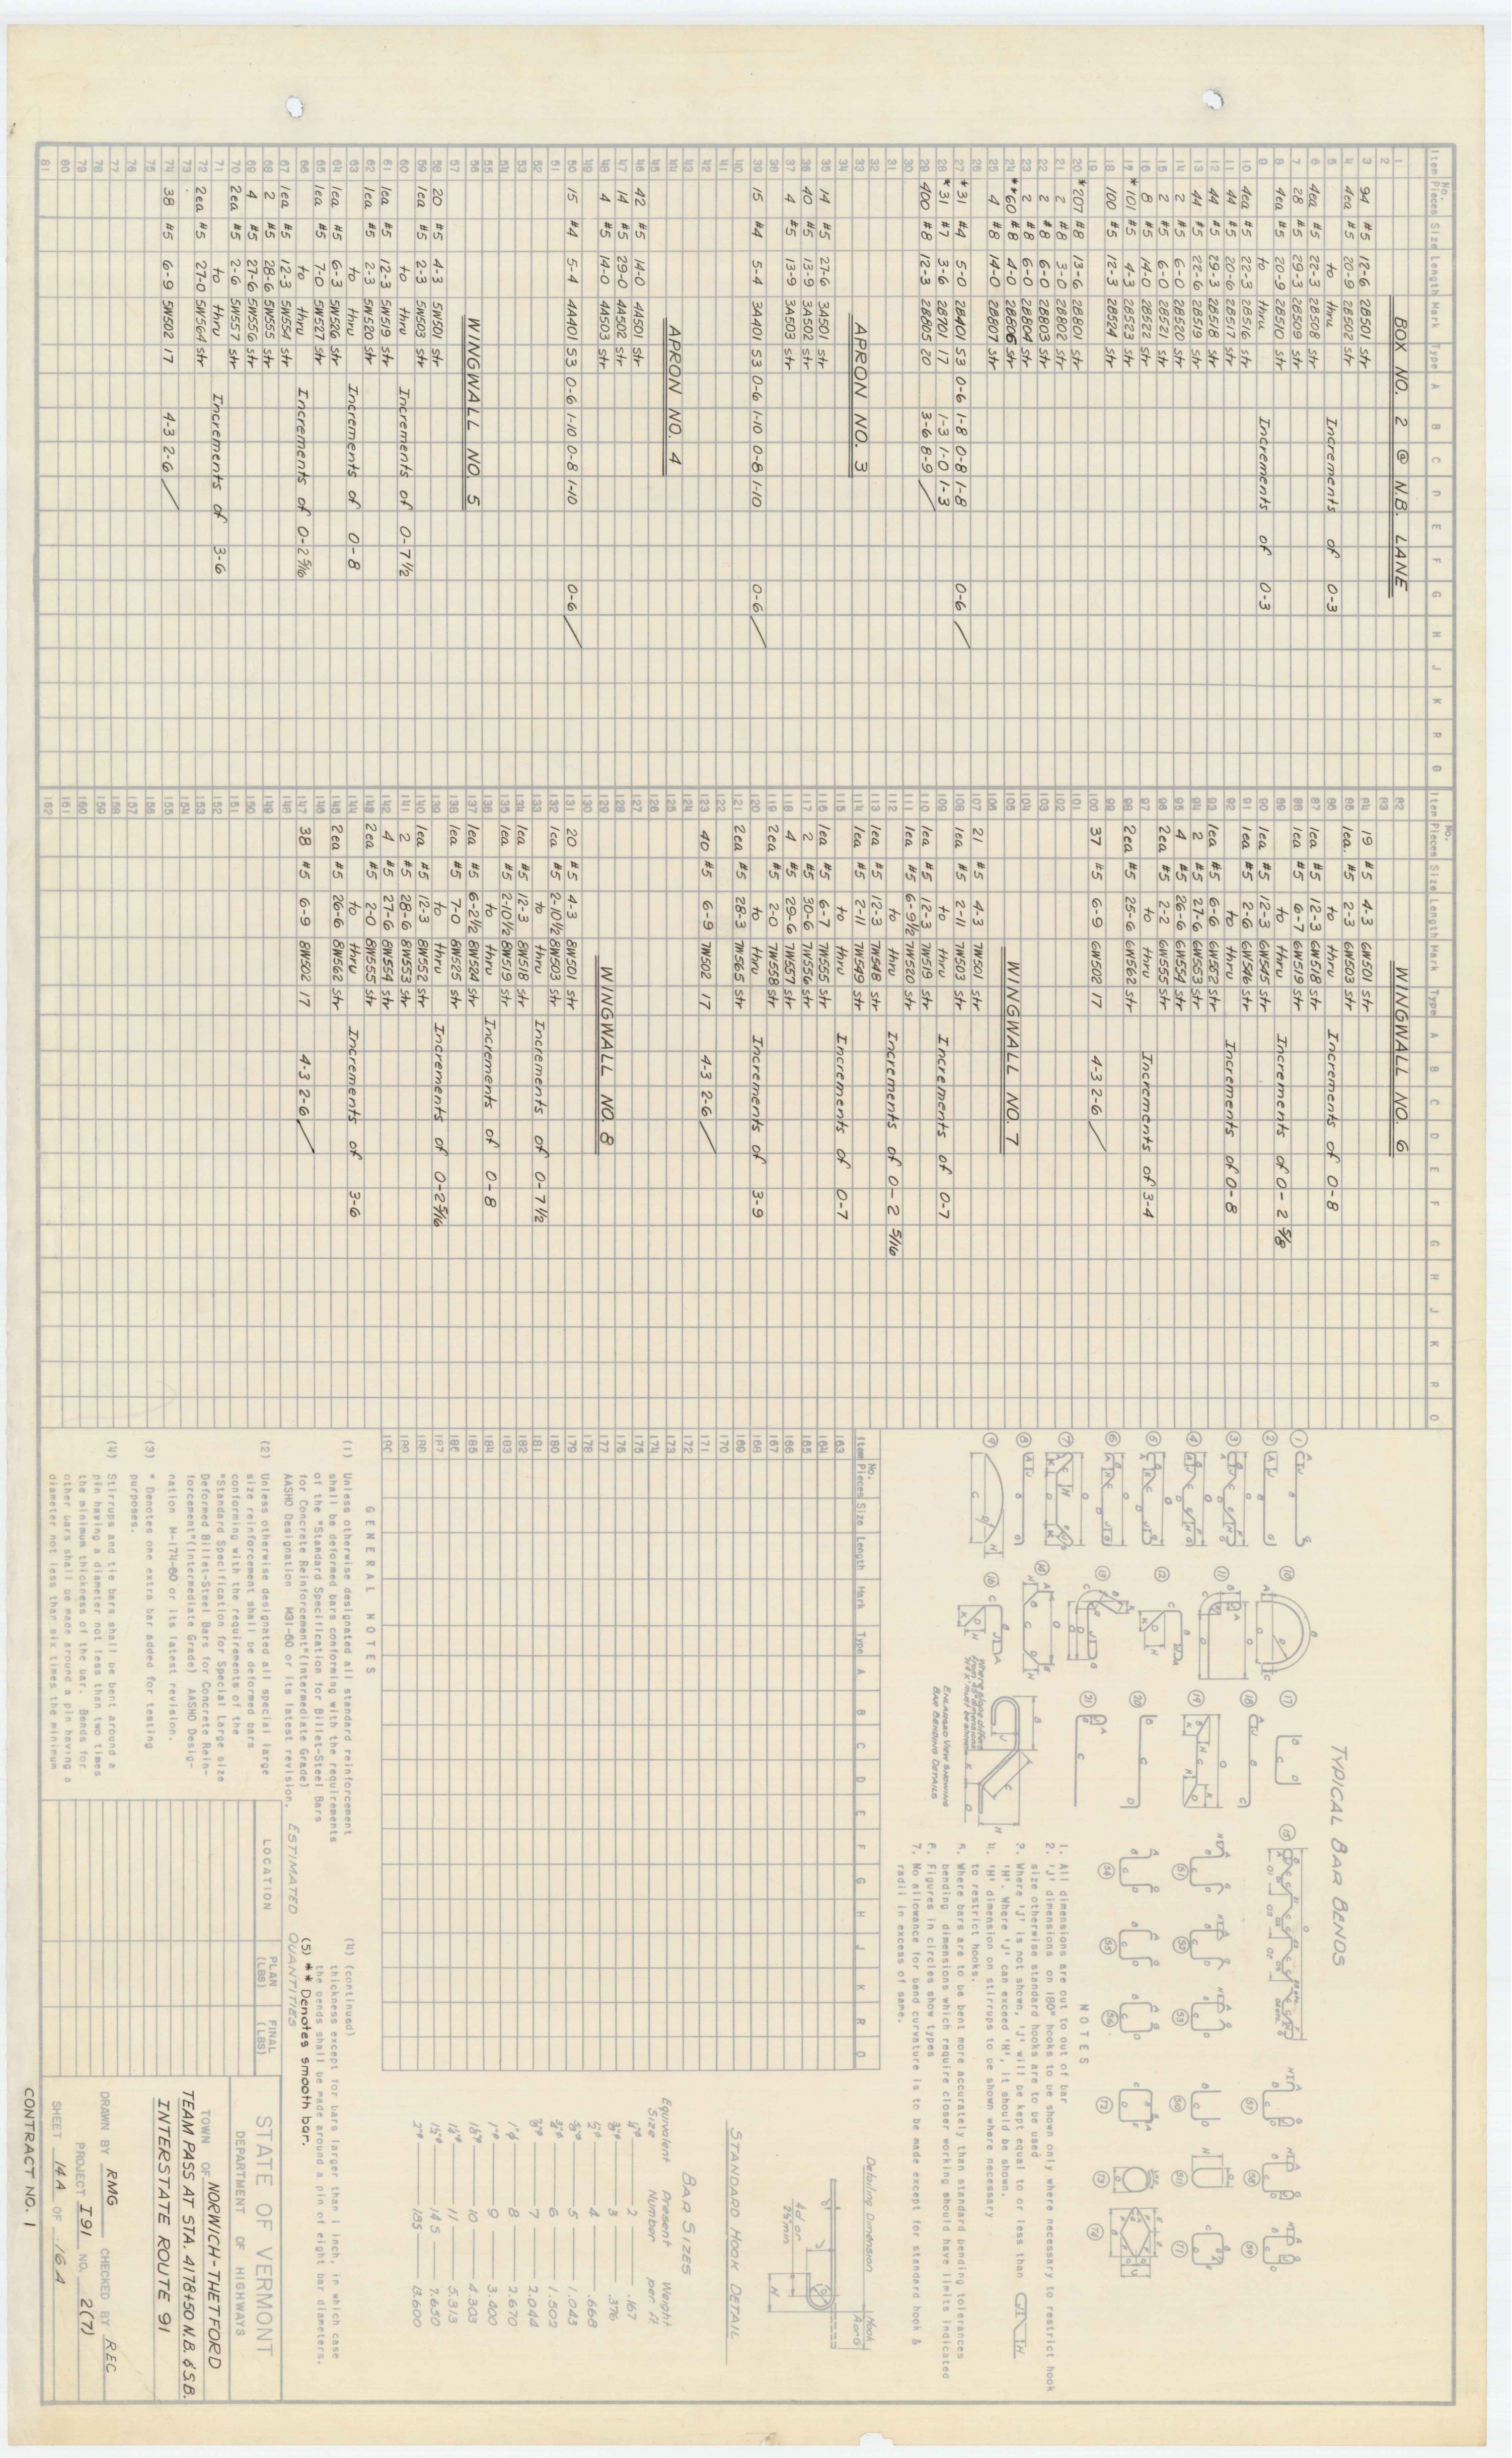 Item No. Pieces Size Length Mark Type A B C D E F G H J K R O
1 BOX NO. 2 @ N.B. LANE
2
3 94 #5 12-6 2B501 str
4 4ea #5 20-9 2B502 str
5 to thru Increments of 0-3
6 4ea #5 22-3 2B508 str
7 28 #5 29-3 2B509 str
8 4ea #5 20-9 2B510 str
9 to thru Increments of 0-3
10 4ea #5 22-3 2B516 str
11 44 #5 20-6 2B517 str
12 44 #5 29-3 2B518 str
13 44 #5 22-6 2B519 str
14 2 #5 6-0 2B520 str
15 2 #5 6-0 2B521 str
16 8 #5 14-0 2B522 str
17 *101 #5 4-3 2B523 str
18 100 #5 12-3 2B524 str
19
20 *207 #8 13-6 2B801 str
21 2 #8 3-0 2B802 str
22 2 #8 6-0 2B803 str
23 2 #8 6-0 2B804 str
24 **60 #8 4-0 2B806 str
25 4 #8 14-0 2B807 str
26
27 *31 #4 5-0 2B401 53 0-6 1-8 0-8 1-8 0-6
28 *31 #7 3-6 2B701 17 1-3 1-0 1-3
29 400 #8 12-3 2B805 20 3-6 8-9
30
31
32
33 APRON NO. 3
34
35 14 #5 27-6 3A501 str
36 40 #5 13-9 3A502 str
37 4 #5 13-9 3A503 str
38
39 15 #4 5-4 3A401 53 0-6 1-10 0-8 1-10 0-6
40
41
42
43
44 APRON NO. 4
45
46 42 #5 14-0 4A501 str
47 14 #5 29-0 4A502 str
48 4 #5 14-0 4A503 str
49
50 15 #4 5-4 4A401 53 0-6 1-10 0-8 1-10 0-6
51
52
53
54
55
56 WINGWALL NO. 5
57
58 20 #5 4-3 5W501 str
59 1ea #5 2-3 5W503 str
60 to thru Increments of 0-7 1/2
61 1ea #5 12-3 5W519 str
62 1ea #5 2-3 5W520 str
63 to thru Increments of 0-8
64 1ea #5 6-3 5W526 str
65 1ea #5 7-0 5W527 str
66 to thru Increments of 0-2 5/16
67 1ea #5 12-3 5W554 str
68 2 #5 28-6 5W555 str
69 4 #5 27-6 5W556 str
70 2ea #5 2-6 5W557 str
71 to thru Increments of 3-6
72 2ea #5 27-0 5W564 str
73
74 38 #5 6-9 5W502 17 4-3 2-6
75
76
77
78
79
80
81
Item No. Pieces Size Length Mark Type A B C D E F G H J K R O
82 WINGWALL NO. 6
83
84 19 #5 4-3 6W501 str
85 1ea. #5 2-3 6W503 str
86 to thru Increments of 0-8
87 1ea #5 12-3 6W518 str
88 1ea #5 6-7 6W519 str
89 to thru Increments of 0-2 5/8
90 1ea #5 12-3 6W545 str
91 1ea #5 2-6 6W546 str
92 to thru Increments of 0-8
93 1ea #5 6-6 6W552 str
94 2 #5 27-6 6W553 str
95 4 #5 26-6 6W554 str
96 2ea #5 2-2 6W555 str
97 to thru Increments of 3-4
98 2ea #5 25-6 6W562 str
99
100 37 #5 6-9 6W502 17 4-3 2-6
101
102
103
104
105 WINGWALL NO. 7
106
107 21 #5 4-3 7W501 str
108 1ea #5 2-11 7W503 str
109 to thru Increments of 0-7
110 1ea #5 12-3 7W519 str
111 1ea #5 6-9 1/2 7W520 str
112 to thru Increments of 0-2 5/16
113 1ea #5 12-3 7W548 str
114 1ea #5 2-11 7W549 str
115 to thru Increments of 0-7
116 1ea #5 6-7 7W555 str
117 2 #5 30-6 7W556 str
118 4 #5 29-6 7W557 str
119 2ea #5 2-0 7W558 str
120 to thru Increments of 3-9
121 2ea #5 28-3 7W565 str
122
123 40 #5 6-9 7W502 17 4-3 2-6
124
125
126
127
128
129 WINGWALL NO. 8
130
131 20 #5 4-3 8W501 str
132 1ea #5 2-10 1/2 8W503 str
133 to thru Increments of 0-7 1/2
134 1ea #5 12-3 8W518 str
135 1ea #5 2-10 1/2 8W519 str
136 to thru Increments of 0-8
137 1ea #5 6-2 1/2 8W524 str
138 1ea #5 7-0 8W525 str
139 to thru Increments of 0-2 5/16
140 1ea #5 12-3 8W552 str
141 2 #5 28-6 8W553 str
142 4 #5 27-6 8W554 str
143 2ea #5 2-0 8W555 str
144 to thru Increments of 3-6
145 2ea #5 26-6 8W562 str
146
147 38 #5 6-9 8W502 17 4-3 2-6
148
149
150
151
152
153
154
155
156
157
158
159
160
161
162
TYPICAL BAR BENDS
ENLARGED VIEW SHOWING
BAR BENDING DETAILS
NOTES
1. All dimensions are out to out of bar
2. 'J' dimensions on 180° hooks to be shown only where necessary to restrict hook
size otherwise standard hooks are to be used
3. Where 'J' is not shown, 'J' will be kept equal to or less than
'H'. Where 'J' can exceed 'H', it should be shown.
4. 'H' dimension on stirrups to be shown where necessary
to restrict hooks.
5. Where bars are to be bent more accurately than standard bending tolerances
bending dimensions which require closer working should have limits indicated
6. Figures in circles show types
7. No allowance for bend curvature is to be made except for standard hook &
radii in excess of same.
Item No. Pieces Size Length Mark Type A B C D E F G H J K R O
163
164
165
166
167
168
169
170
171
172
173
174
175
176
177
178
179
180
181
182
183
184
185
186
187
188
189
190
Detailing Dimension
Hook
A or G
4d or
2½ min
STANDARD HOOK DETAIL
BAR SIZES
Equivalent Size Present Number Weight per. ft
¼"ø 2 .167
⅜"ø 3 .376
½"ø 4 .668
⅝"ø 5 1.043
¾"ø 6 1.502
⅞"ø 7 2.044
1"ø 8 2.670
9 3.400
10 4.303
11 5.313
14S 7.650
18S 13.600
GENERAL NOTES
(1) Unless otherwise designated all standard reinforcement
shall be deformed bars conforming with the requirements
of the "Standard Specification for Billet-Steel Bars
for Concrete Reinforcement"(Intermediate Grade)
AASHO Designation M31-60 or its latest revision.
(2) Unless otherwise designated all special large
size reinforcement shall be deformed bars
conforming with the requirements of the
"Standard Specification for Special Large size
Deformed Billet-Steel Bars for Concrete Rein-
forcement"(Intermediate Grade) AASHO Desig-
nation M-174-60 or its latest revision.
(3) * Denotes one extra bar added for testing
purposes.
(4) Stirrups and tie bars shall be bent around a
pin having a diameter not less than two times
the minimum thickness of the bar. Bends for
other bars shall be made around a pin having a
diameter not less than six times the minimum
(4) (continued)
thickness except for bars larger than 1 inch, in which case
the bends shall be made around a pin of eight bar diameters.
(5) ** Denotes smooth bar.
ESTIMATED QUANTITIES
LOCATION PLAN (LBS) FINAL (LBS)
STATE OF VERMONT
DEPARTMENT OF HIGHWAYS
TOWN OF NORWICH-THETFORD
TEAM PASS AT STA. 4178+50 N.B. & S.B.
INTERSTATE ROUTE 91
DRAWN BY RMG CHECKED BY REC
PROJECT I 91 NO. 2(7)
SHEET 14A OF 16A
CONTRACT NO. 1